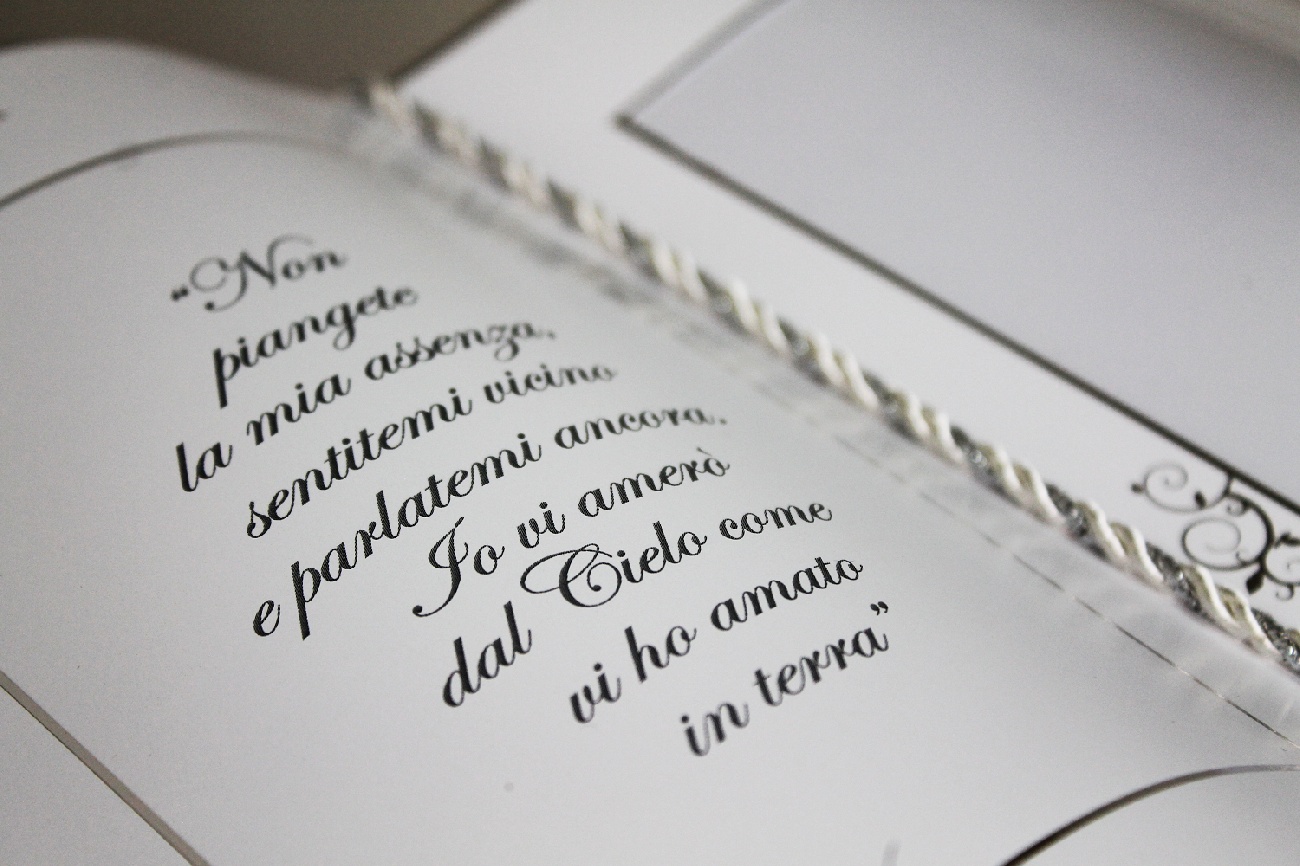 “Non
piangete
la mia assenza,
sentitemi vicino
e parlatemi ancora.
Io vi amerò
dal Cielo come
vi ho amato
in terra”